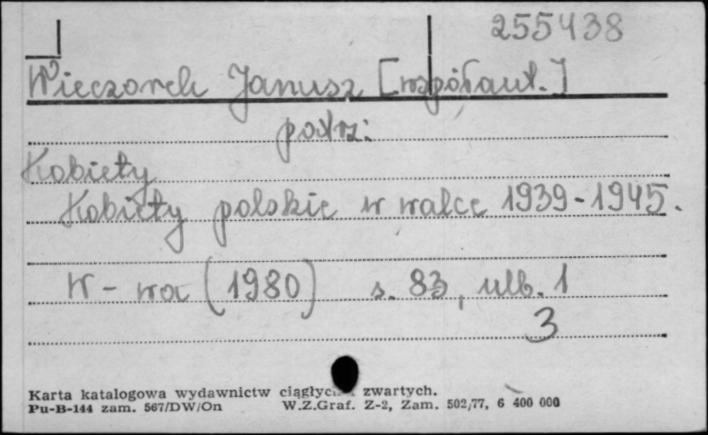 255438
Wieczorek Janusz [współaut.]
patrz:
Kobiety
Kobiety polskie w walce 1939-1945.
W-wa (1980) s. 83, ulb. 1
3
Karta katalogowa wydawnictw ciągłych i zwartych.
Pu-B-144 zam. 567/DW/On W.Z.Graf. Z-2, Zam. 502/77, 6 400 000